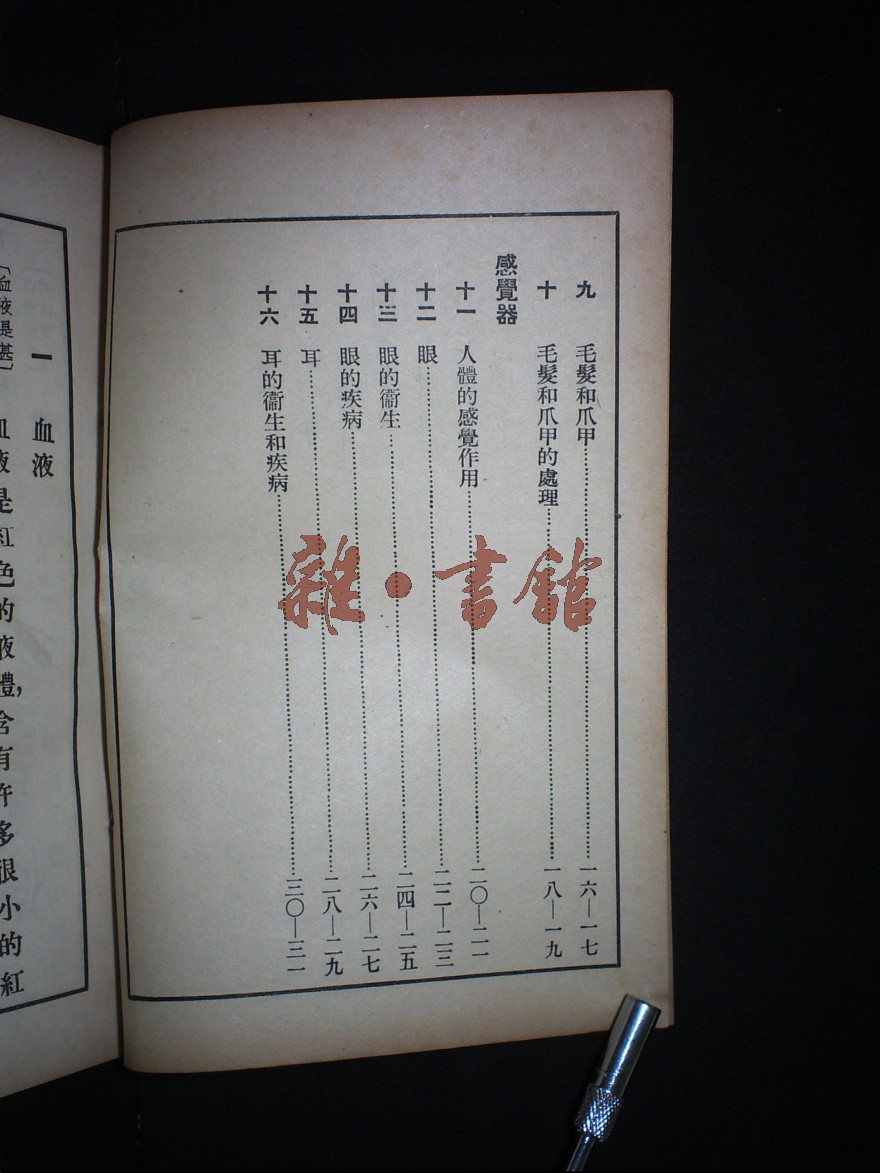 九 毛髮和爪甲……一六—一七
十 毛髮和爪甲的處理……一八—一九
感覺器
十一 人體的感覺作用……二〇—二一
十二 眼……二二—二三
十三 眼的衞生……二四—二五
十四 眼的疾病……二六—二七
十五 耳……二八—二九
十六 耳的衞生和疾病……三〇—三一
雜·書館
一 血液
〔血液是甚〕
血液是紅色的液體，含有許多很小的紅